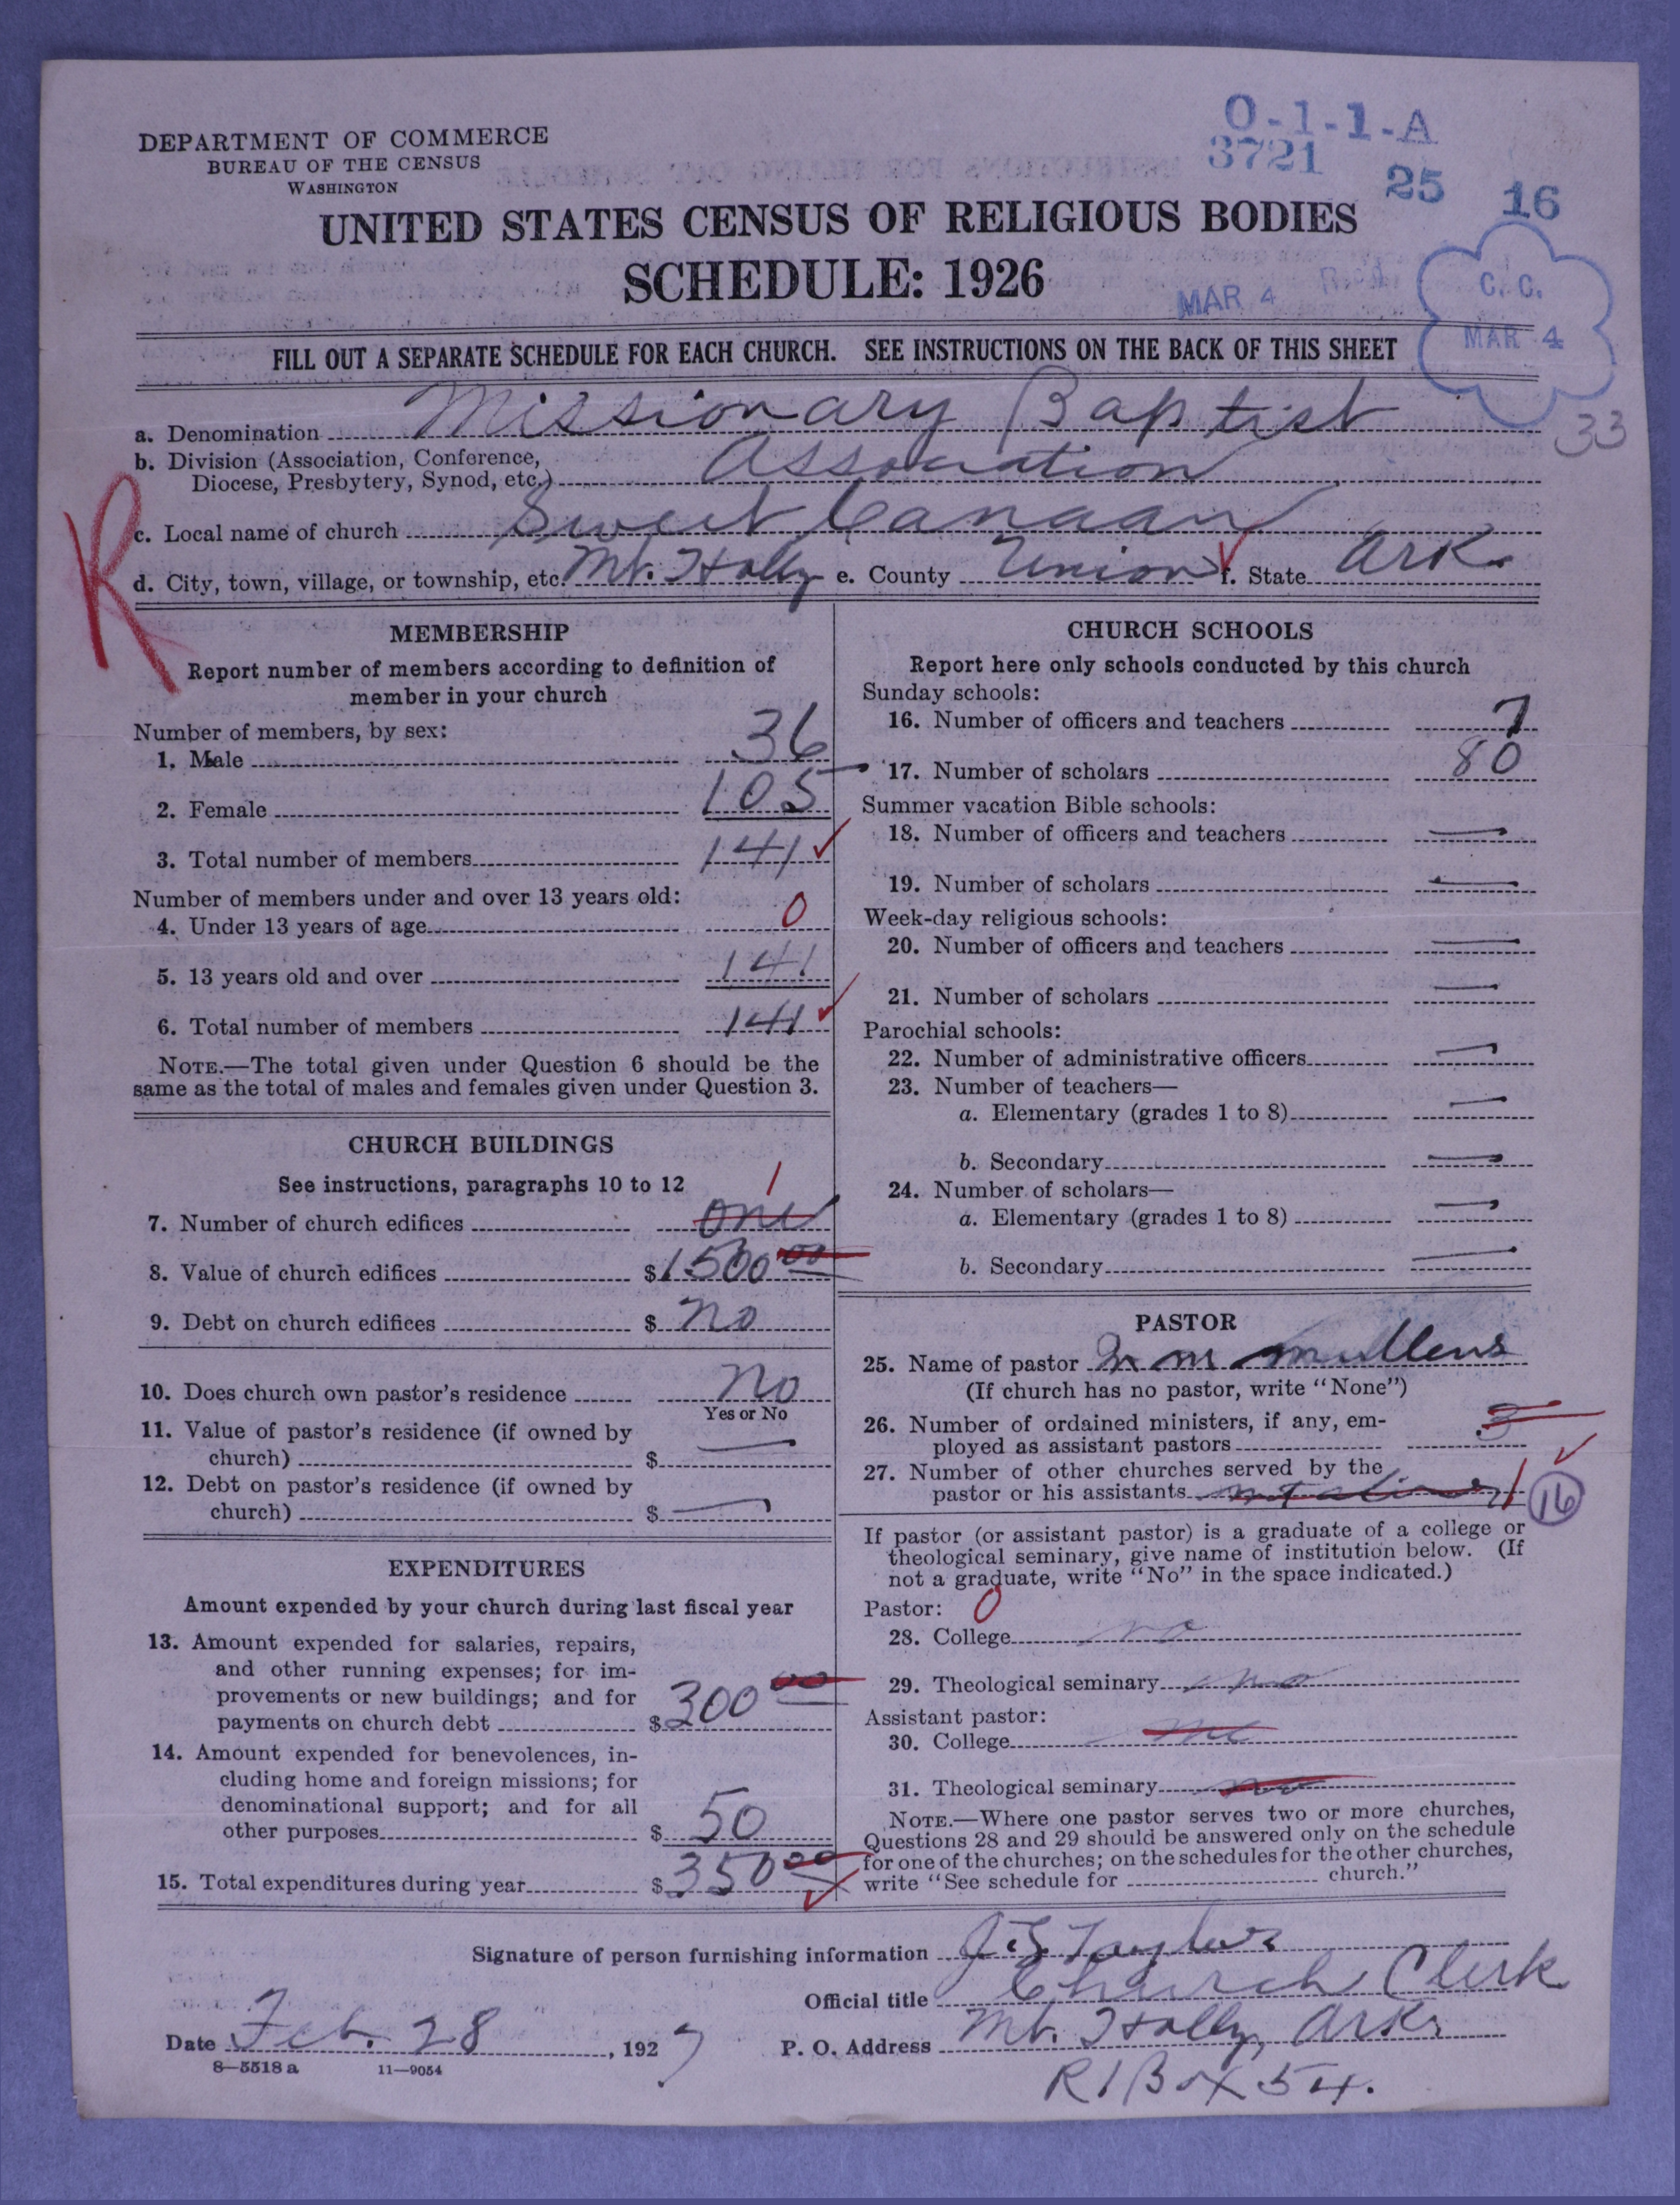 DEPARTMENT OF COMMERCE
BUREAU OF THE CENSUS
WASHINGTON
O-1-1-A
3721
25 16
UNITED STATES CENSUS OF RELIGIOUS BODIES
SCHEDULE: 1926
MAR 4
C. C.
MAR 4
FILL OUT A SEPARATE SCHEDULE FOR EACH CHURCH. SEE INSTRUCTIONS ON THE BACK OF THIS SHEET
33
a. Denomination Missionary Baptist
b. Division (Association, Conference,
Diocese, Presbytery, Synod, etc.) Association
R
c. Local name of church Sweet Canaan
d. City, town, village, or township, etc. Mt. Holly e. County Union f. State Ark.
MEMBERSHIP
Report number of members according to definition of
member in your church
Number of members, by sex:
1. Male 36
2. Female 105
3. Total number of members 141
Number of members under and over 13 years old:
4. Under 13 years of age 0
5. 13 years old and over 141
6. Total number of members 141
NOTE.—The total given under Question 6 should be the
same as the total of males and females given under Question 3.
CHURCH BUILDINGS
See instructions, paragraphs 10 to 12
7. Number of church edifices one 1
8. Value of church edifices $1500 00
9. Debt on church edifices $ no
10. Does church own pastor's residence no
Yes or No
11. Value of pastor's residence (if owned by
church) $ —
12. Debt on pastor's residence (if owned by
church) $ —
EXPENDITURES
Amount expended by your church during last fiscal year
13. Amount expended for salaries, repairs,
and other running expenses; for im-
provements or new buildings; and for
payments on church debt $300 00
14. Amount expended for benevolences, in-
cluding home and foreign missions; for
denominational support; and for all
other purposes $ 50
15. Total expenditures during year $350 00
CHURCH SCHOOLS
Report here only schools conducted by this church
Sunday schools:
16. Number of officers and teachers 7
17. Number of scholars 80
Summer vacation Bible schools:
18. Number of officers and teachers —
19. Number of scholars —
Week-day religious schools:
20. Number of officers and teachers —
21. Number of scholars —
Parochial schools:
22. Number of administrative officers —
23. Number of teachers—
a. Elementary (grades 1 to 8) —
b. Secondary —
24. Number of scholars—
a. Elementary (grades 1 to 8) —
b. Secondary —
PASTOR
25. Name of pastor m Mullens
(If church has no pastor, write "None")
26. Number of ordained ministers, if any, em-
ployed as assistant pastors 3
27. Number of other churches served by the
pastor or his assistants 1 16
If pastor (or assistant pastor) is a graduate of a college or
theological seminary, give name of institution below. (If
not a graduate, write "No" in the space indicated.)
Pastor: 0
28. College no
29. Theological seminary no
Assistant pastor:
30. College no
31. Theological seminary no
NOTE.—Where one pastor serves two or more churches,
Questions 28 and 29 should be answered only on the schedule
for one of the churches; on the schedules for the other churches,
write "See schedule for church."
Signature of person furnishing information Taylor
Official title Church Clerk
Date Feb. 28, 1927
P. O. Address Mt. Holly, Ark.
R 1 Box 54.
8—5518 a 11—9054